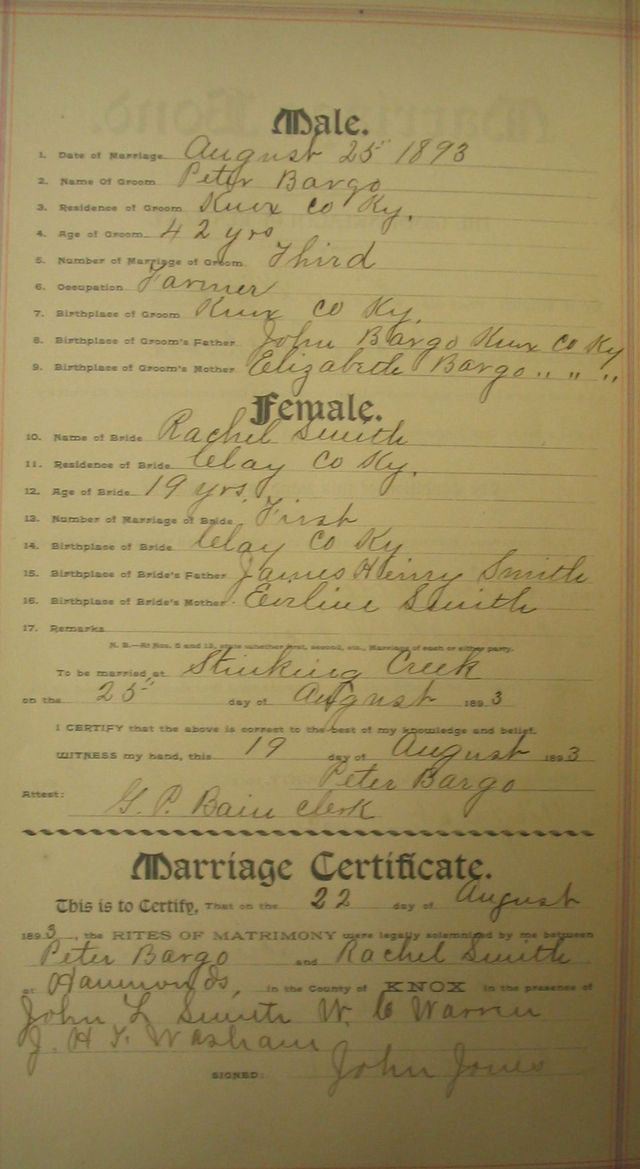 Male.
1. Date of Marriage August 25" 1893
2. Name Of Groom Peter Bargo
3. Residence of Groom Knox Co Ky.
4. Age of Groom 42 yrs
5. Number of Marriage of Groom Third
6. Occupation Farmer
7. Birthplace of Groom Knox Co Ky.
8. Birthplace of Groom's Father John Bargo Knox Co Ky
9. Birthplace of Groom's Mother Elizabeth Bargo " " "
Female.
10. Name of Bride Rachel Smith
11. Residence of Bride Clay Co Ky.
12. Age of Bride 19 yrs.
13. Number of Marriage of Bride First
14. Birthplace of Bride Clay Co Ky
15. Birthplace of Bride's Father James Henry Smith
16. Birthplace of Bride's Mother Evline Smith
17. Remarks
N. B.—At Nos. 5 and 13, state whether first, second, etc., Marriage of each or either party.
To be married at Stinking Creek
on the 25" day of August 1893
I CERTIFY that the above is correct to the best of my knowledge and belief.
WITNESS my hand, this 19 day of August 1893
Peter Bargo
Attest: G. P. Bain Clerk
Marriage Certificate.
This is to Certify, That on the 22 day of August
1893, the RITES OF MATRIMONY were legally solemnized by me between
Peter Bargo and Rachel Smith
at Hammonds, in the County of KNOX in the presence of
John L Smith W. C Warren
J. H. T. Washam
SIGNED: John Jones